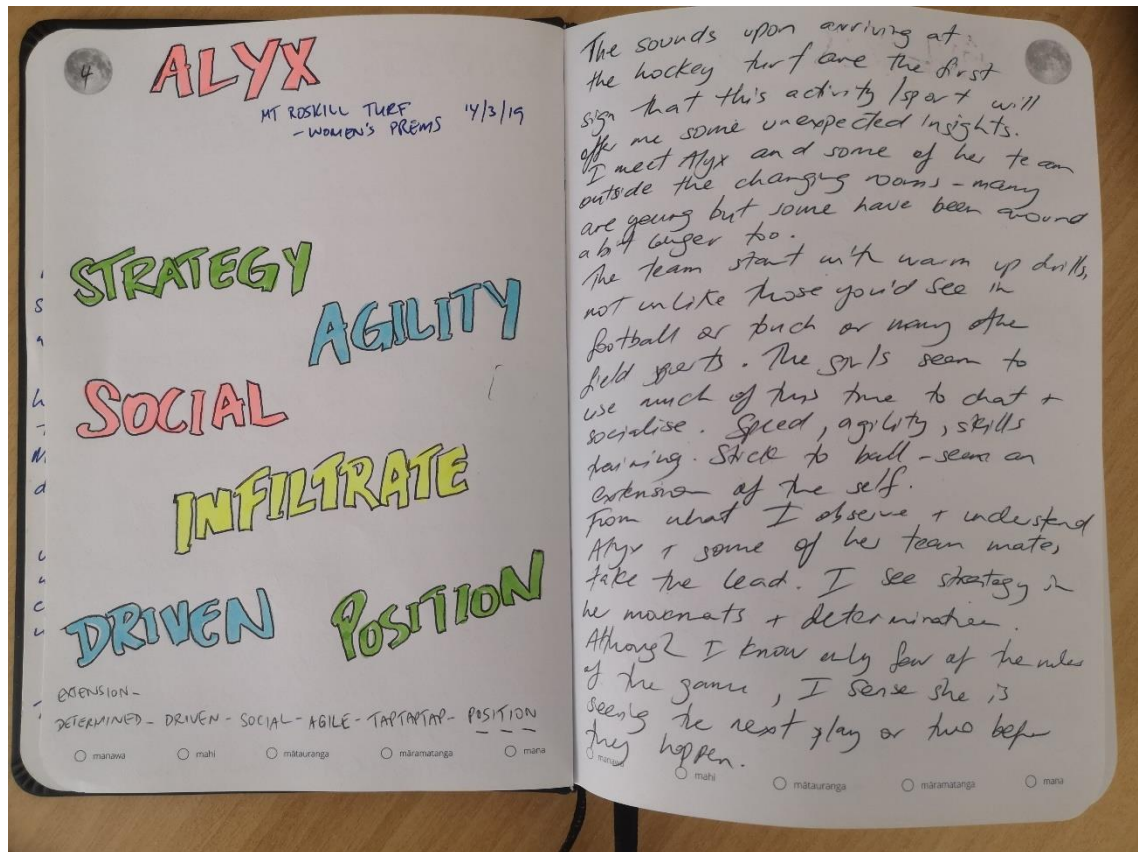 4
ALYX
MT ROSKILL TURF
- WOMEN'S PREMS 14/3/19
STRATEGY
AGILITY
SOCIAL
INFILTRATE
DRIVEN
POSITION
EXTENSION -
DETERMINED - DRIVEN - SOCIAL - AGILE - TAPTAPTAP - POSITION
manawa mahi mātauranga māramatanga mana
The sounds upon arriving at
the hockey turf are the first
sign that this activity/sport will
offer me some unexpected insights.
I meet Alyx and some of her team
outside the changing rooms - many
are young but some have been around
a bit longer too.
The team start with warm up drills,
not unlike those you'd see in
football or touch or many othe
field sports. The girls seem to
use much of this time to chat +
socialise. Speed, agility, skills
training. Stick to ball - seem an
extension of the self.
From what I observe + understand
Alyx + some of her team mates
take the lead. I see strategy in
her movements + determination.
Although I know only few of the rules
of the game, I sense she is
seeing the next play or two before
they happen.
manawa mahi mātauranga māramatanga mana